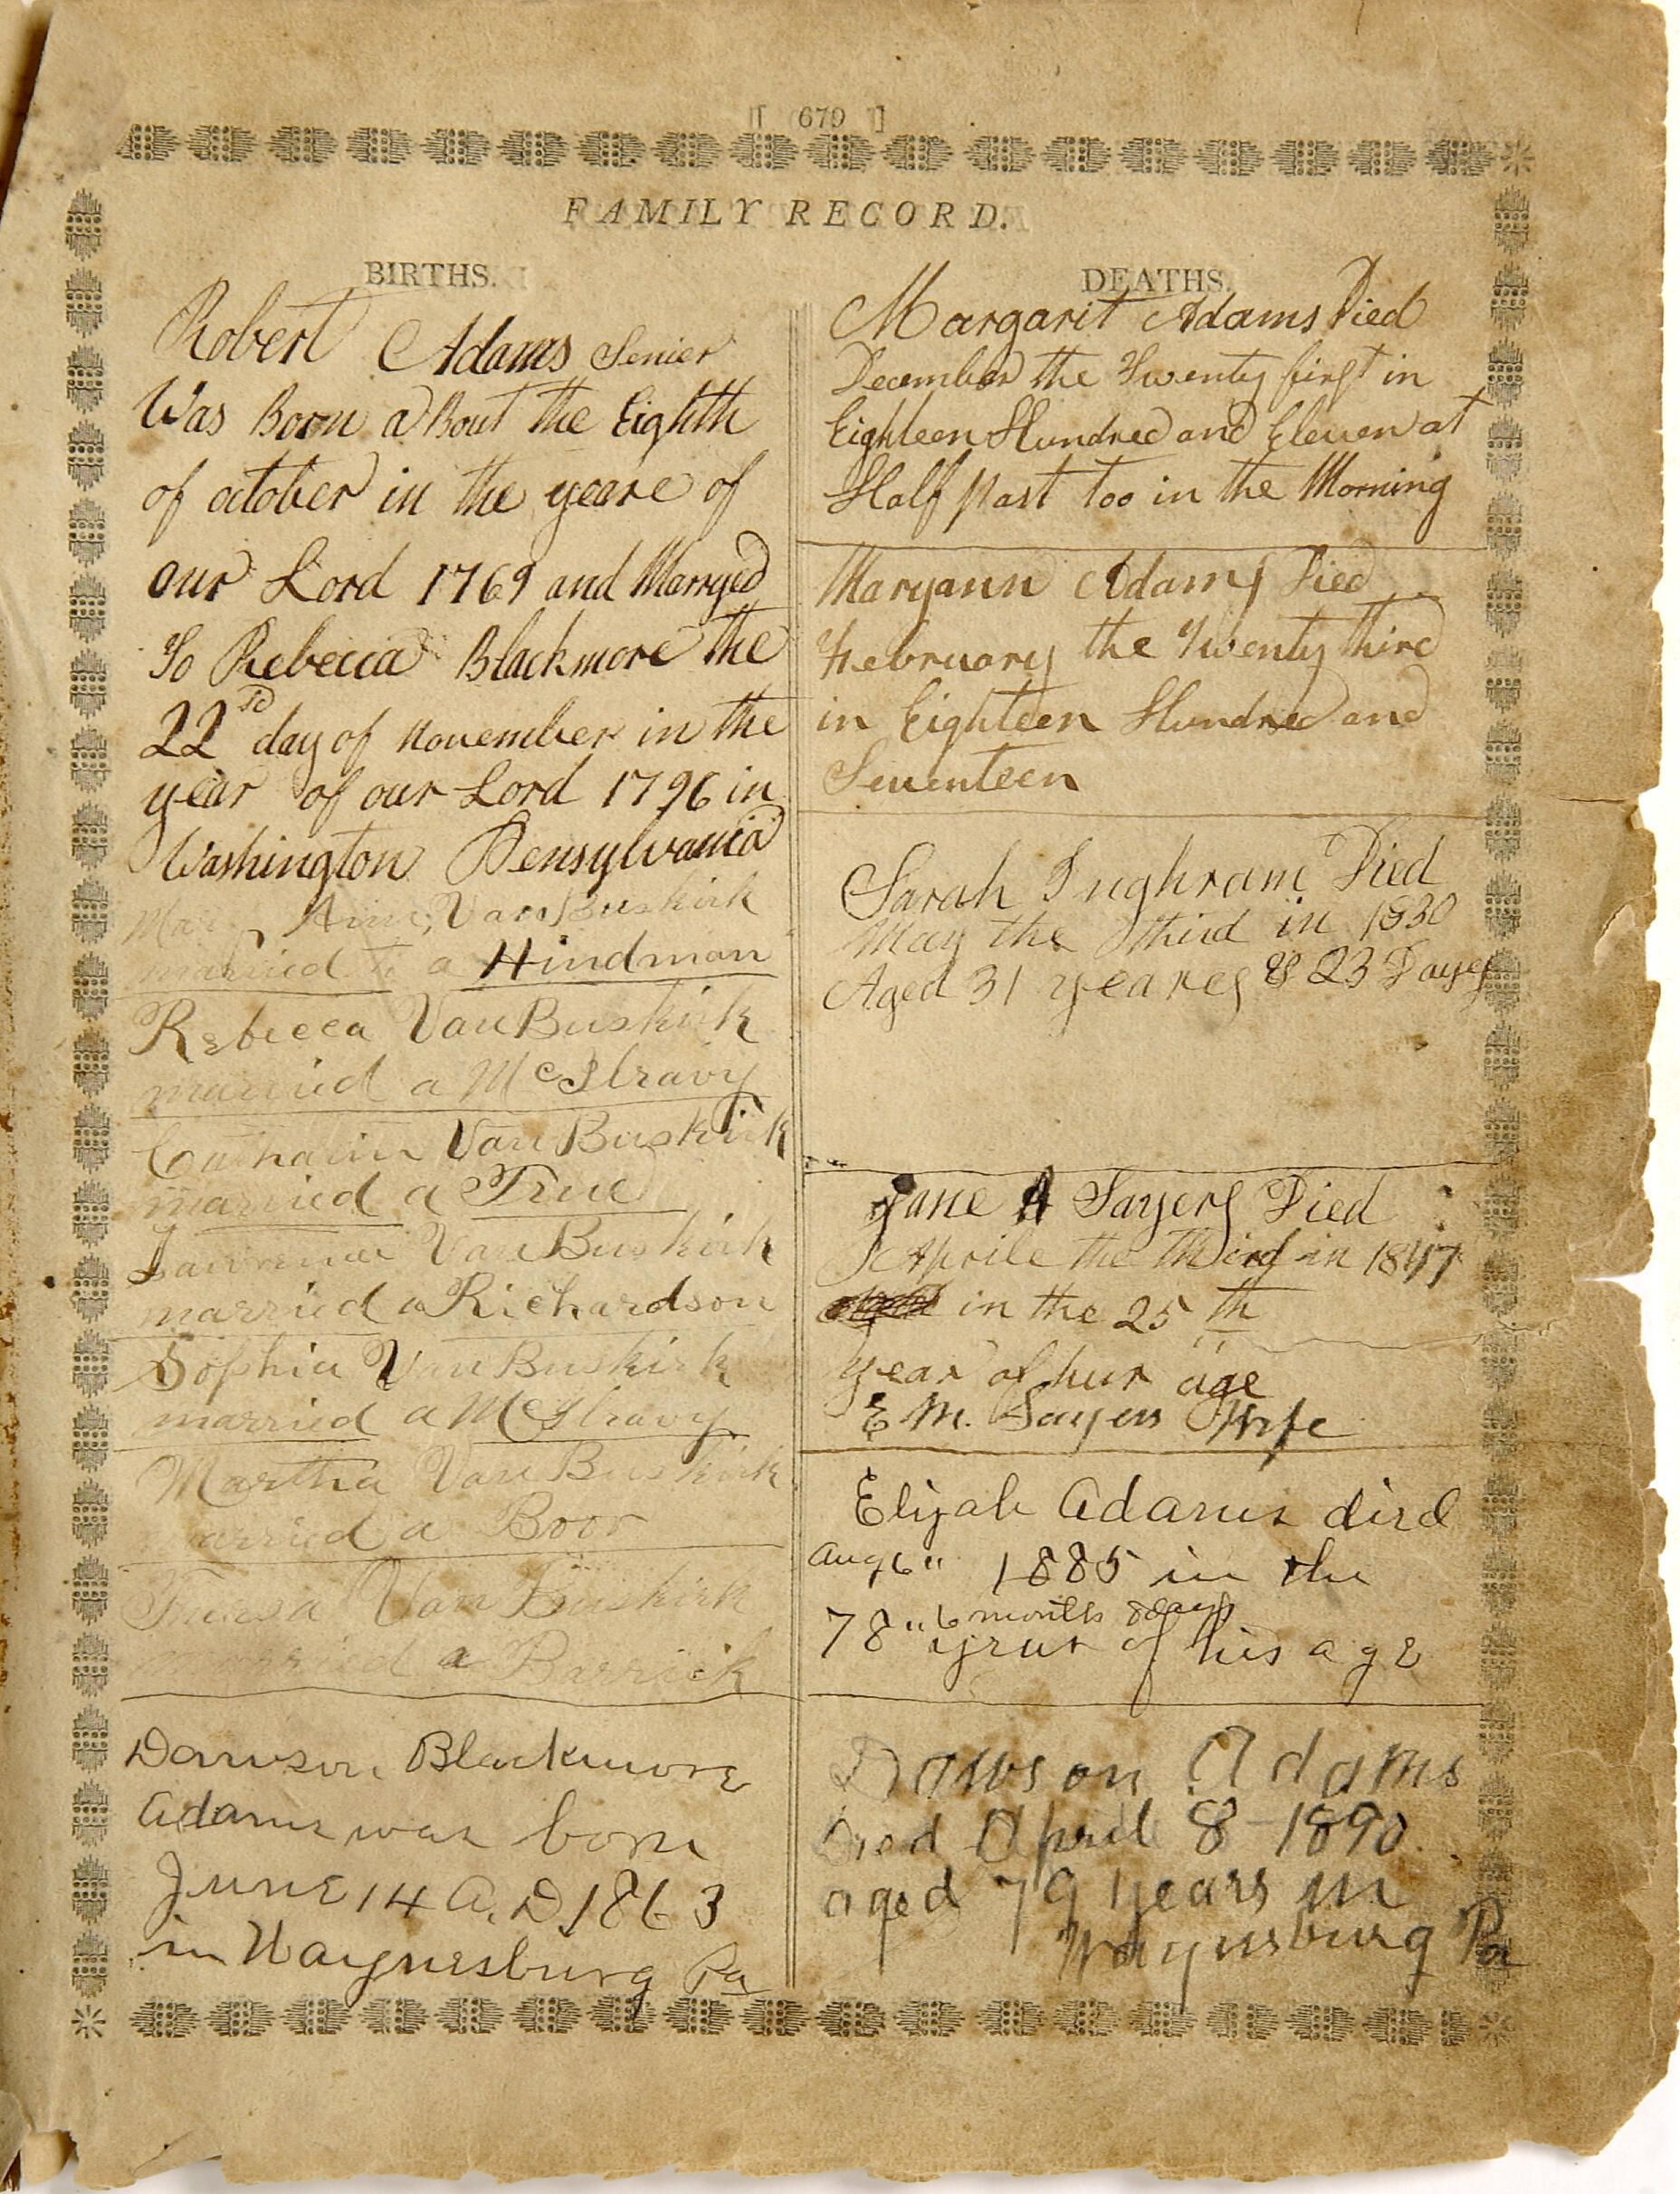 [ 679 ]
FAMILY RECORD.
BIRTHS.
Robert Adams Senier
Was Born a Bout the Eighth
of october in the yeare of
our Lord 1769 and Marryed
To Rebecca Blackmore the
22sd day of November in the
year of our Lord 1796 in
Washington Pensylvania
Ann VanBuskirk
married to a Hindman
Rebecca VanBuskirk
married a McIlravy
VanBuskirk
married a True
Lawrence VanBuskirk
married a Richardson
Sophia VanBuskirk
married a McIlravy
Martha VanBuskirk
married a Boor
VanBuskirk
married a Barrick
Dawson Blackmore
Adams was born
June 14 A.D. 1863
in Waynesburg Pa
DEATHS.
Margarit Adams Died
December the Twenty first in
Eighteen Hundred and Eleven at
Half past too in the Morning
Maryann Adams Died
February the Twenty third
in Eighteen Hundred and
Seventeen
Sarah Inghram Died
May the third in 1830
Aged 31 yeares & 23 Dayes
Jane A Sayers Died
Aprile the third in 1847
in the 25th
year of hur age
E M. Sayers Wife
Elijah Adams died
Aug 6" 1885 in the
6 months 8 days
78" year of his age
Dawson Adams
Died April 8 - 1890
aged 79 years in
Waynesburg Pa